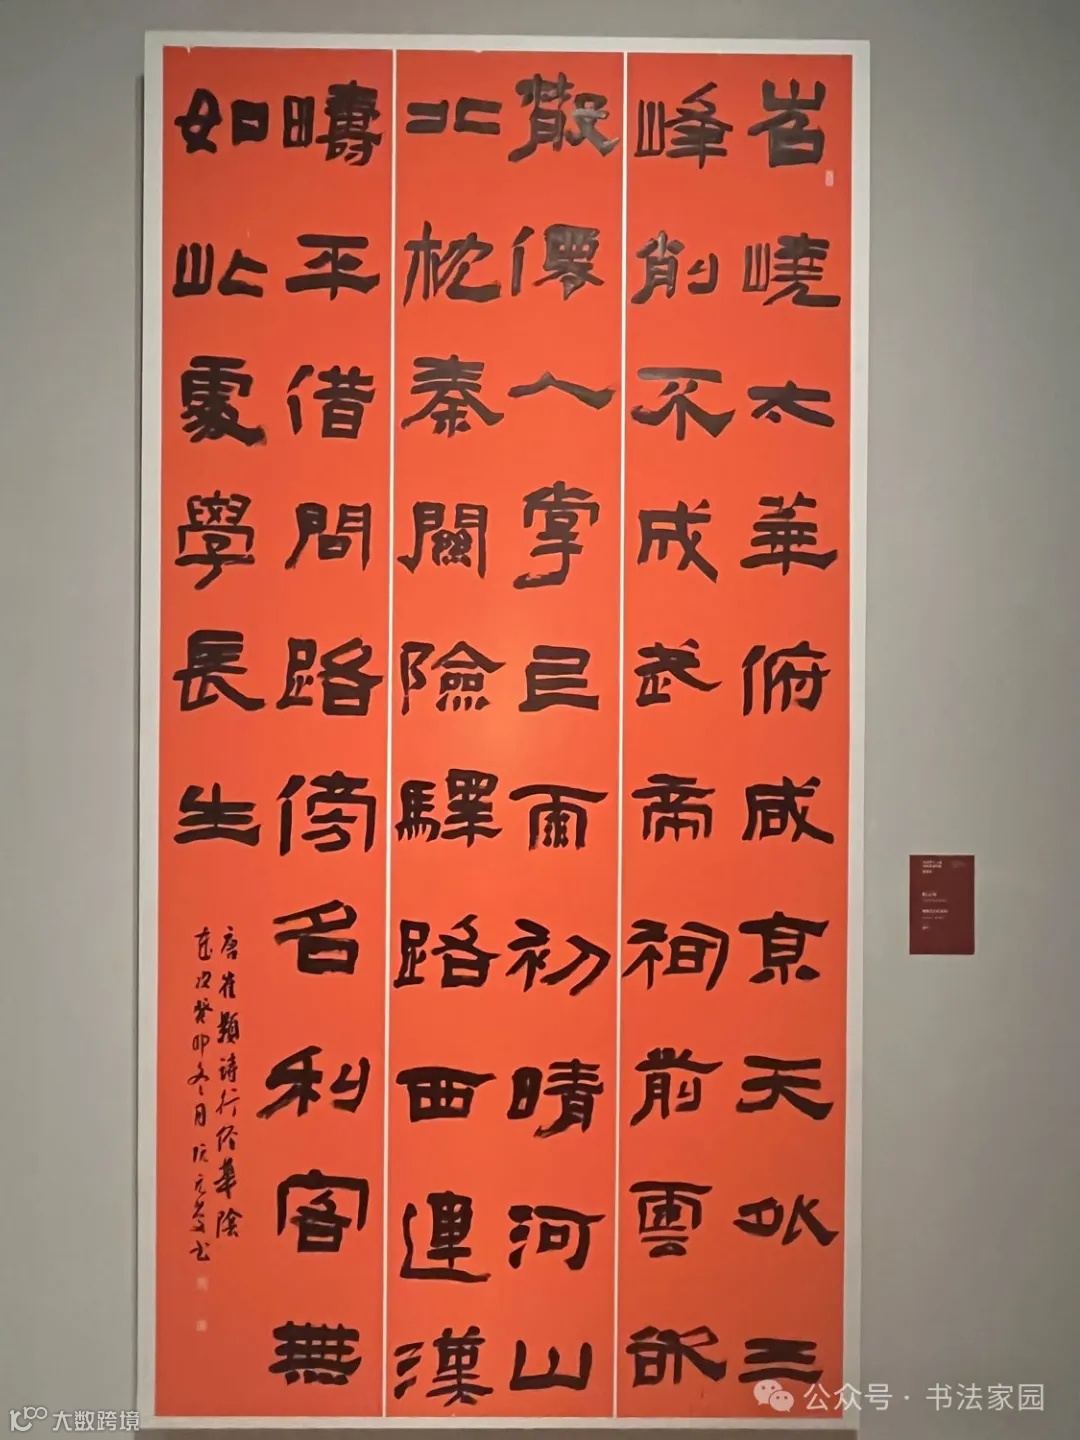 岧嶢太華俯咸京天外三
峰削不成武帝祠前雲欲
散僊人掌已雨初晴河山
北枕秦關險驛路西連漢
疇平借問路傍名利客無
如此處學長生
唐崔顥詩行經華陰
歲次癸卯冬月
公众号·书法家园
大数跨境